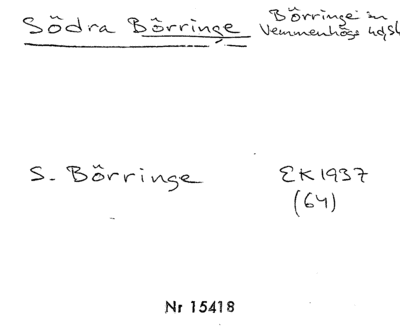 Södra Börringe
Börringe sn
Vemmenhögs hd, Sk
S. Börringe
EK 1937
(64)
Nr 15418